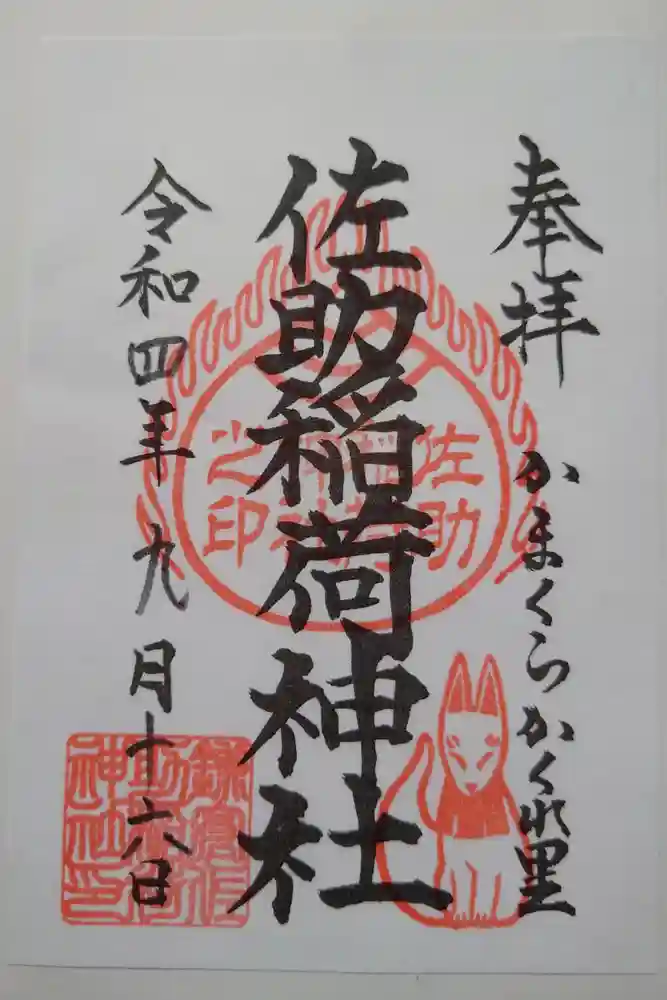 奉拝
かまくらかくれ里
佐助稲荷神社
令和四年九月十六日
佐助稲荷神社之印